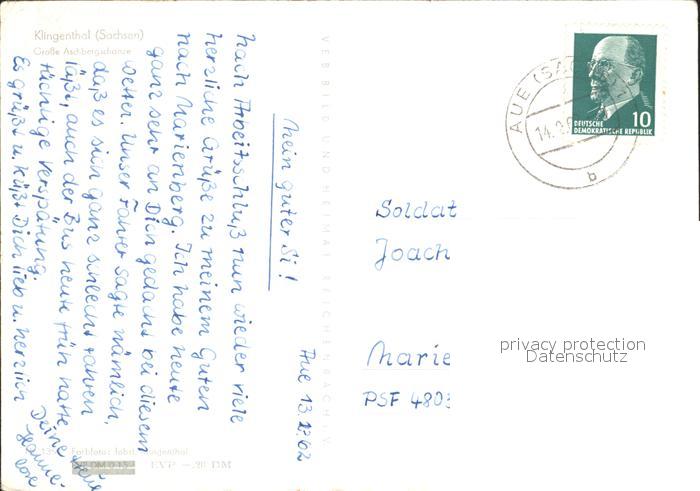 Klingenthal (Sachsen)
Große Aschbergschanze
Aue 13.2.62
Mein guter Si!
Nach Arbeitsschluß nun wieder viele
herzliche Grüße zu meinem Guten
nach Marienberg. Ich habe heute
ganz sehr an Dich gedacht bei diesem
Wetter. Unser Fahrer sagte nämlich,
daß es sich ganz schlecht fahren
läßt, auch der Bus heute früh hatte
tüchtige Verspätung.
Es grüßt u. küßt Dich lieb u. herzlich
Deine
Hanne-
lore
VEB BILD UND HEIMAT REICHENBACH I. V.
EVP —.20 DM
AUE (SA
14.2.6
b
DEUTSCHE
DEMOKRATISCHE REPUBLIK
10
Soldat
Joach
Marie
PSF 480
privacy protection
Datenschutz